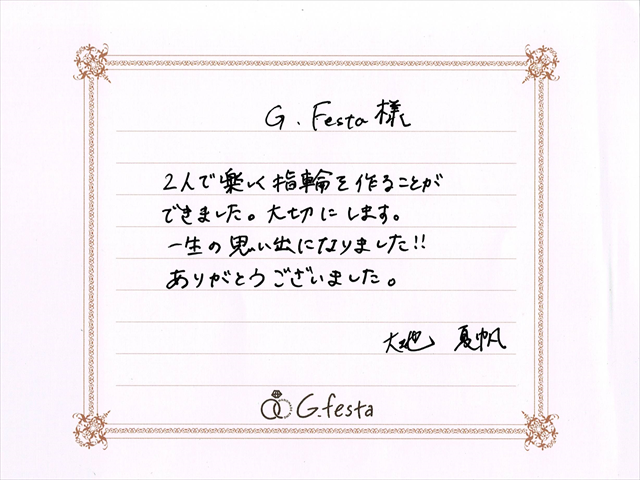 G. Festa 様
2人で楽しく指輪を作ることが
できました。大切にします。
一生の思い出になりました!!
ありがとうございました。
大地 夏帆
G.festa